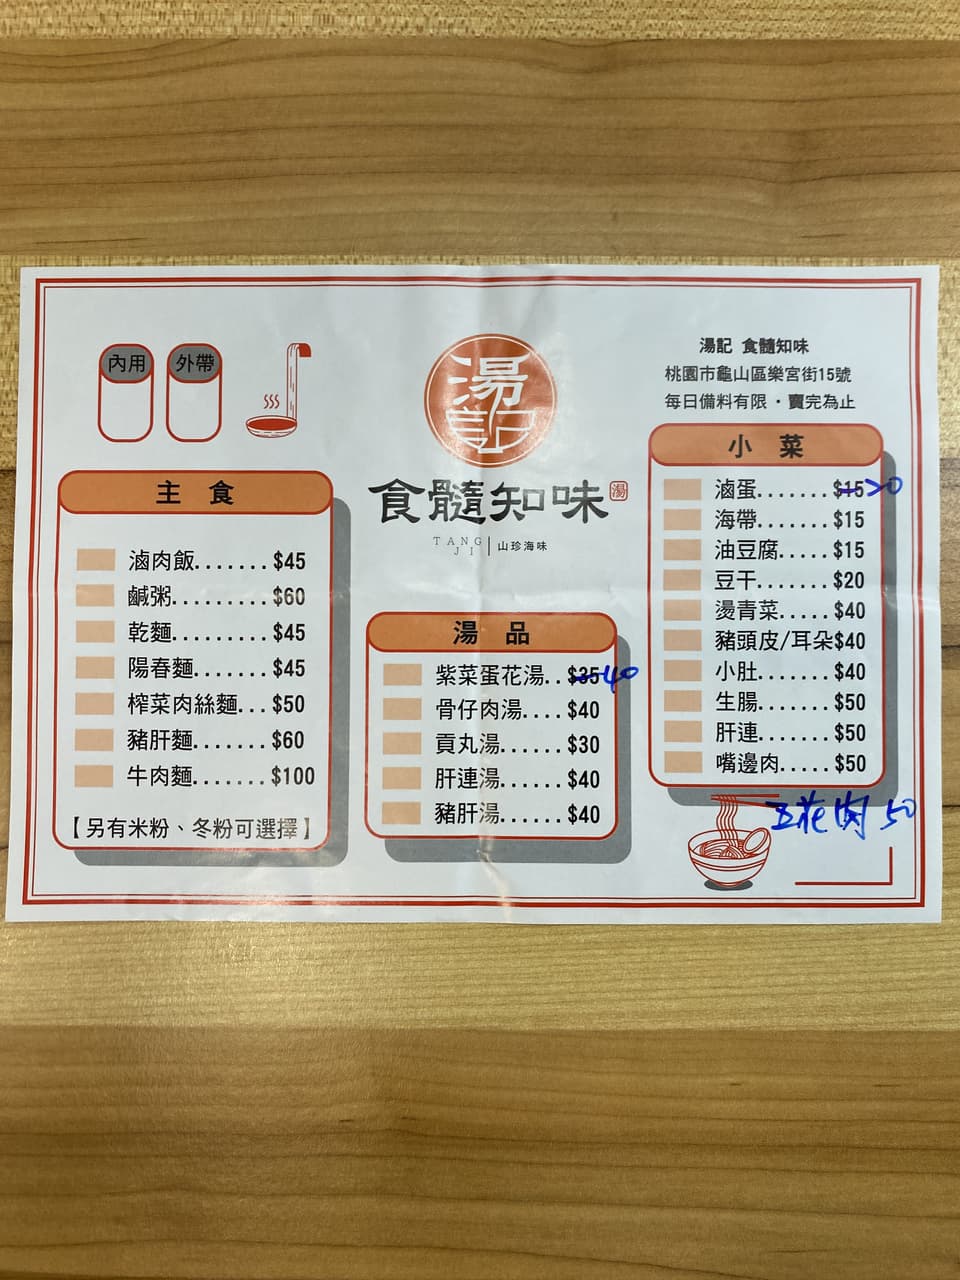 內用
外帶
湯記
食髓知味
湯
TANG JI
山珍海味
湯記 食髓知味
桃園市龜山區樂宮街15號
每日備料有限·賣完為止
主食
滷肉飯.......$45
鹹粥.........$60
乾麵.........$45
陽春麵.......$45
榨菜肉絲麵...$50
豬肝麵.......$60
牛肉麵.......$100
【另有米粉、冬粉可選擇】
湯品
紫菜蛋花湯..$35 40
骨仔肉湯....$40
貢丸湯......$30
肝連湯......$40
豬肝湯......$40
小菜
滷蛋.......$15 20
海帶.......$15
油豆腐.....$15
豆干.......$20
燙青菜.....$40
豬頭皮/耳朵$40
小肚.......$40
生腸.......$50
肝連.......$50
嘴邊肉.....$50
五花肉 50